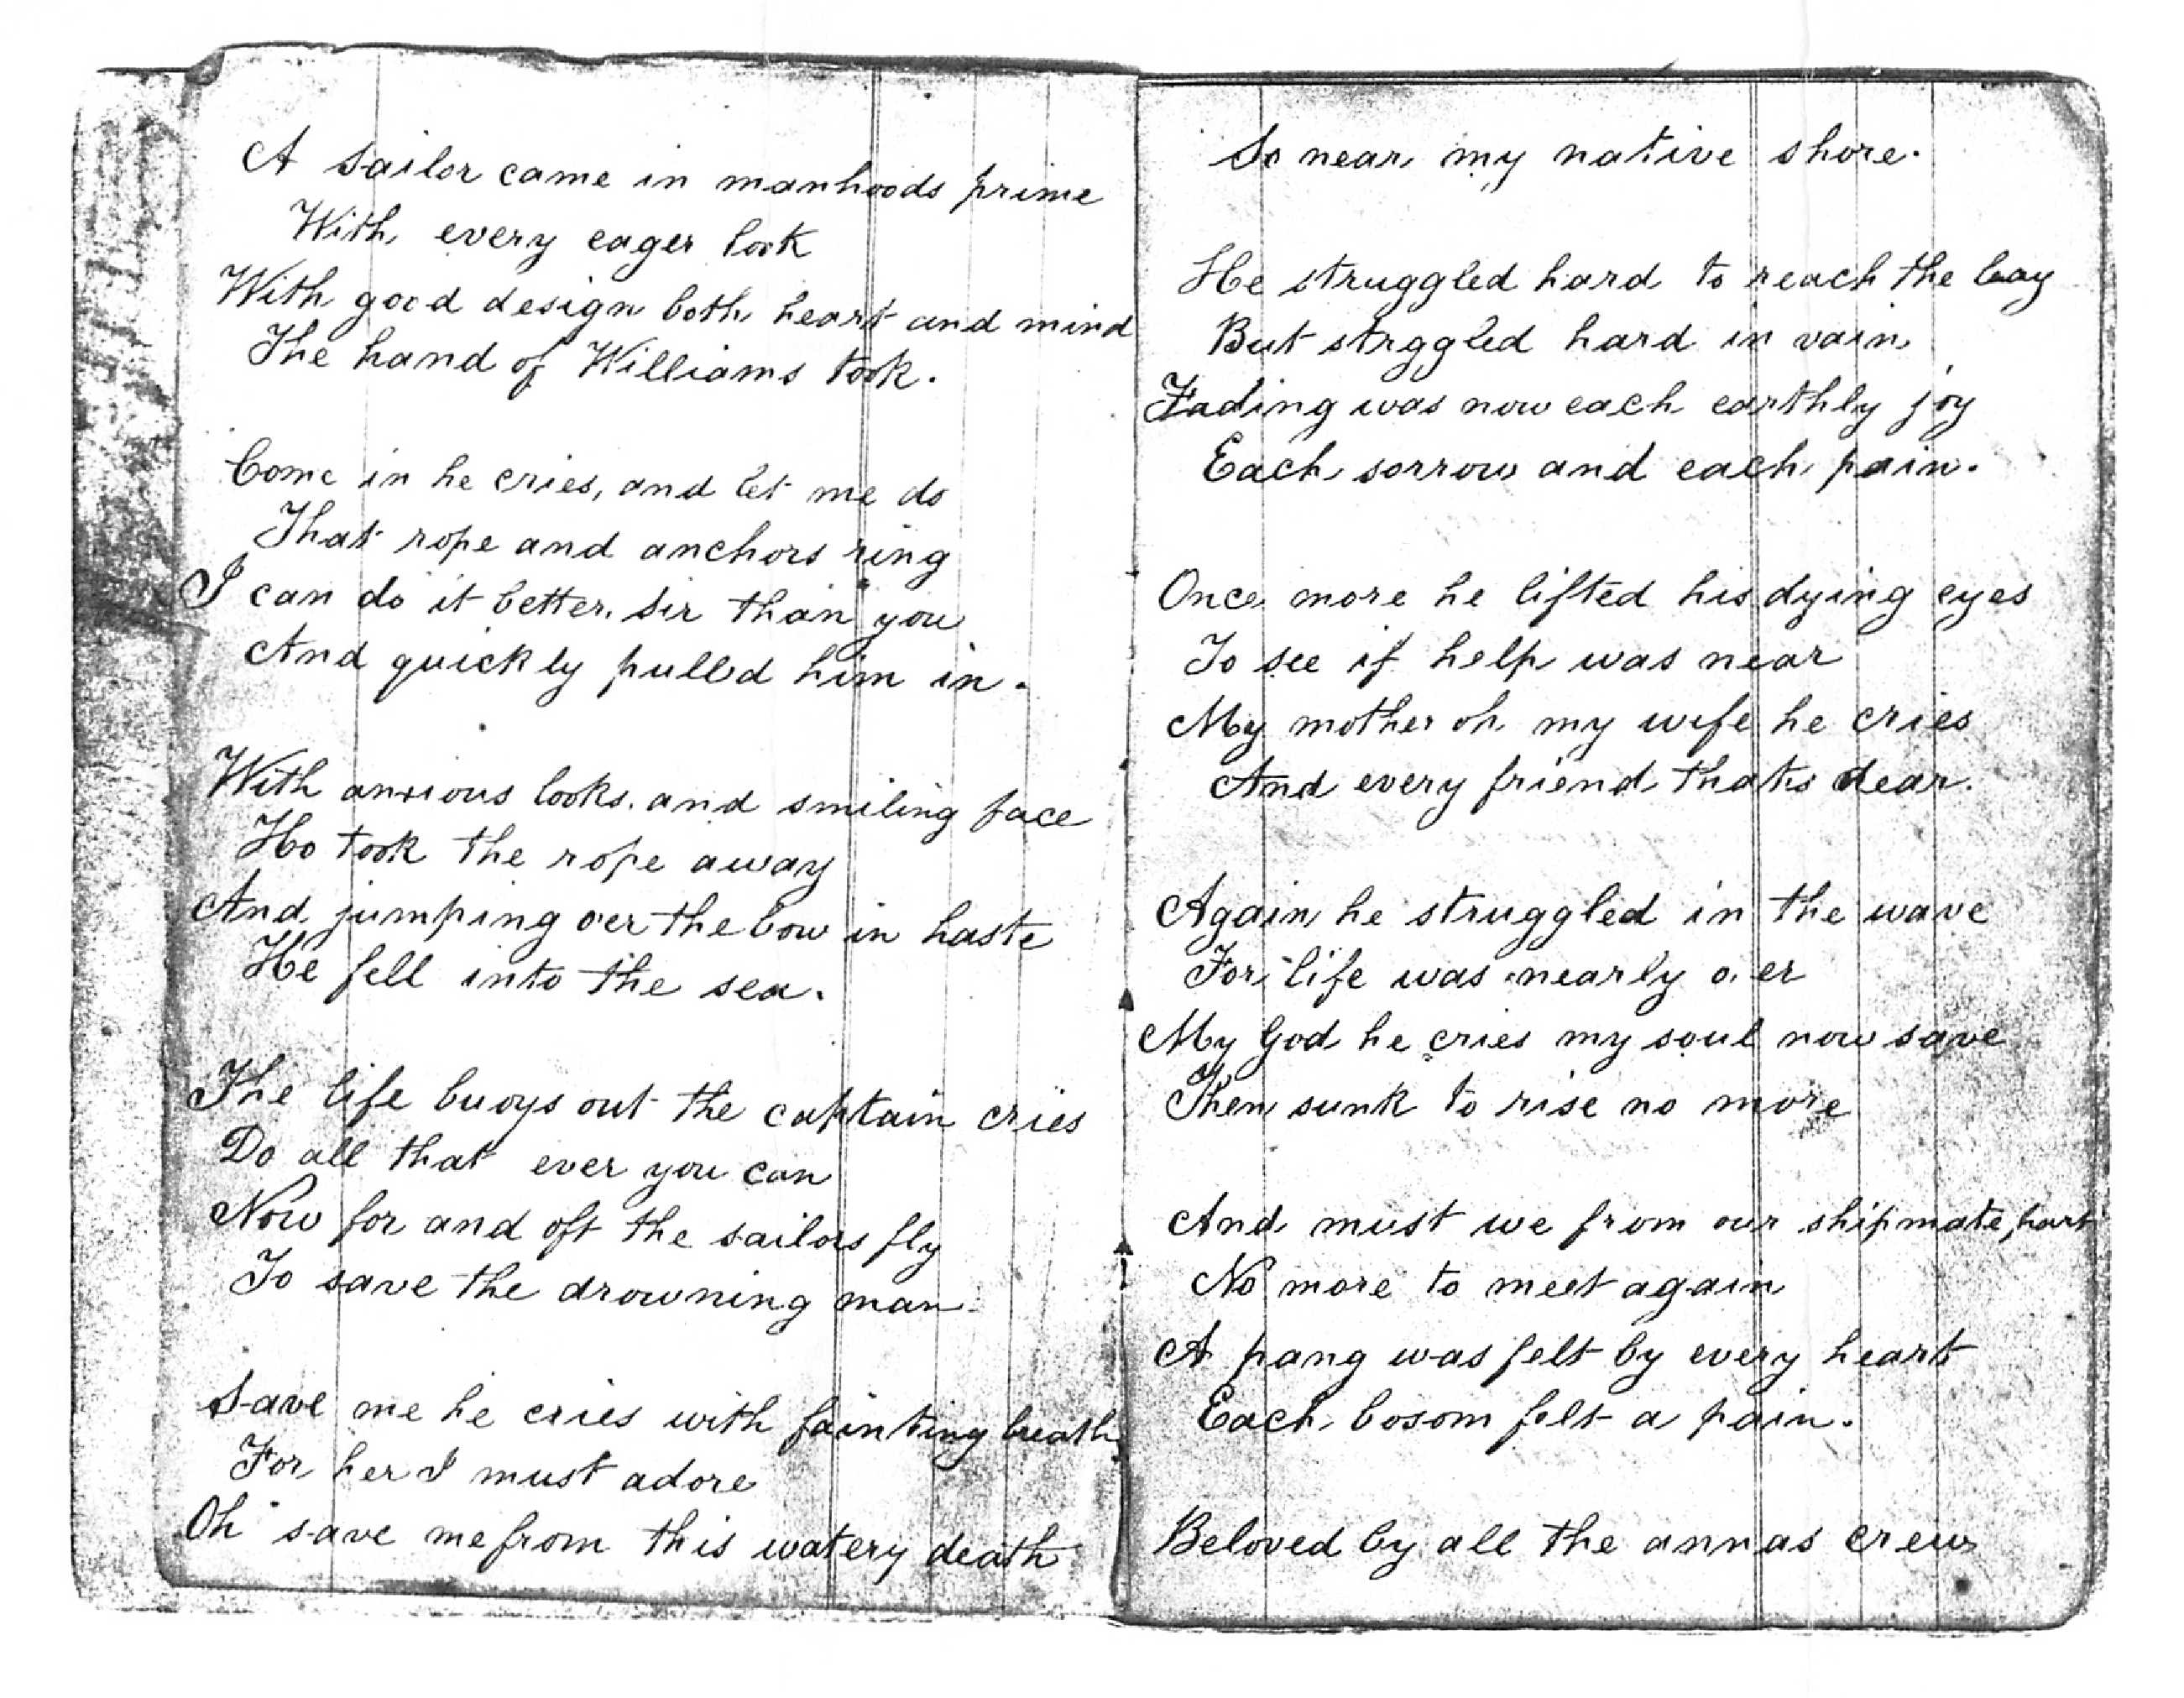 A sailor came in manhoods prime
With every eager look
With good design both heart and mind
The hand of Williams took.
Come in he cries, and let me do
That rope and anchors ring
I can do it better. Sir than you
And quickly pulled him in.
With anxious looks. and smiling face
Ho took the rope away
And jumping oer the bow in haste
He fell into the sea.
The life buoys out the captain cries
Do all that ever you can
Now for and aft the sailors fly
To save the drowning man.
Save me he cries with fainting breath
For her I must adore
Oh save me from this watery death
So near my native shore.
He struggled hard to reach the bay
But strggled hard in vain
Fading was now each earthly joy
Each sorrow and each pain.
Once more he lifted his dying eyes
To see if help was near
My mother oh my wife he cries
And every friend thats dear.
Again he struggled in the wave
For life was nearly o.er
My God he cries my soul now save
Then sunk to rise no more
And must we from our shipmate part
No more to meet again
A pang was felt by every heart
Each bosom felt a pain.
Beloved by all the annas crew